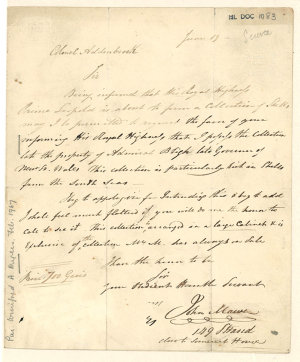 ML DOC 1083
June 19
Colonel Addenbrooke
Sir
Being informed that His Royal Highness
Prince Leopold is about to form a Collection of Shells
may I be permitted to request the favor of your
informing His Royal Highness that I possess the Collection
late the property of Admiral Bligh late Governor of
New So. Wales This collection is particularly rich in Shells
from the South Seas
I beg to apologize for Intruding this & beg to add
I shall feel much flattered if you will do me the honor to
call to see it This collection arranged in a large Cabinet & is
Exclusive of the collection Mr M. has always on Sale
I have the honor to be
Sir
Your Obedient Humble Servant
John Mawe
149 Strand
close to Somerset House